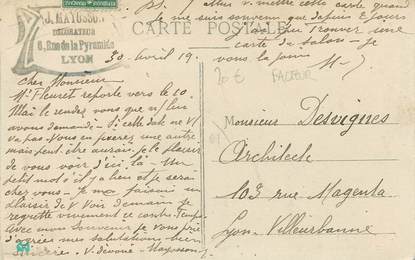 P.S. Allais v. mettre cette carte quand
je me suis souvenu que depuis 2 jours
carte du salon - je
vous la joins M -
J. MAYOSSON
DÉCORATEUR
6, Rue de la Pyramide
LYON
CARTE POSTALE
30 Avril 19
20 €
FACTEUR
Cher Monsieur
Mr Fleuret reporte vers le 10
Mai le rendez vous que n/ lui
avons demandé. Si cette date ne v/
va pas. Vous en prierez une autre
mais peut être aurai-je le plaisir
de vous voir d'ici là. Un
petit mot s'il y a lieu et je serai
chez vous - Je me faisais un
plaisir de v. voir demain je
regrette vivement ce contre-temps.
Avec mon souvenir je vous prie
d'agréer mes salutations bien
sincères. V. dévoué
Monsieur Desvignes
Architecte
103 rue Magenta
Lyon-Villeurbanne